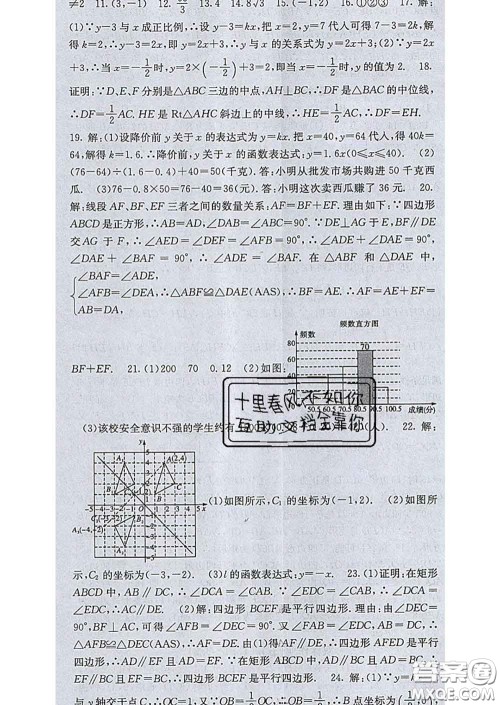 ≠2　11.(3,-1)　12.　13.4　14.8√3　15.(-1,2)　16.①②③　17.解:
(1)∵y-3与x成正比例,∴设y-3=kx,把x=2,y=7代入可得7-3=2k,解
得k=2,∴y-3=2x,即y与x的关系式为y=2x+3;(2)∵y=2x
+3,∴当x=-1/2时,y=2×(-1/2)+3=2,即当x=-1/2时,y的值为2.　18.
证明:∵D、E、F分别是△ABC三边的中点,AH⊥BC,∴DF是△BAC的中位线,
∴DF=1/2AC. HE是Rt△AHC斜边上的中线,∴HE=1/2AC,∴DF=EH.
19.解:(1)设降价前y关于x的表达式为y=kx.把x=40,y=64代入,得40k=
64,解得k=1.6.∴降价前,y关于x的函数表达式:y=1.6x(0≤x≤40).　(2)
(76-64)÷(1.6-0.4)+40=50(千克).答:小明从批发市场共购进50千克西
瓜.　(3)76-0.8×50=76-40=36(元).答:小明这次卖西瓜赚了36元.　20.
解:线段AF、BF、EF三者之间的数量关系:AF=BF+EF.理由如下:∵四边形
ABCD是正方形,∴AB=AD,∠DAB=∠ABC=90°.∵DE⊥AG于E,BF∥DE
交AG于F,∴∠AED=∠DEF=∠AFB=90°,∴∠ADE+∠DAE=90°,
∠DAE+∠BAF=90°,∴∠ADE=∠BAF.在△ABF和△DAE中,
∠BAF=∠ADE,
∠AFB=∠DEA,∴△ABF≌△DAE(AAS),∴BF=AE.∴AF=AE+EF=
AB=DA,
BF+EF.　21.(1)200　70　0.12　(2)如图:
频数直方图
频数
80
70
60
40
20
0
50.5 60.5 70.5 80.5 90.5 100.5 成绩(分)
十里春风不如你
互助文档全靠你
(3)该校安全意识不强的学生约有
(人).　22.解:
A(2,4)
(1)如图所示,C₁的坐标为(-1,2).　(2)如图所
示,C₂的坐标为(-3,-2).　(3)l的函数表达式:y=-x.　23.(1)证明:在矩形
ABCD中,AB∥DC,∴∠DCA=∠CAB.∵∠EDC=∠CAB,∴∠DCA=
∠EDC,∴AC∥DE.　(2)解:四边形BCEF是平行四边形.理由:由∠DEC=
90°,BF⊥AC,可得∠AFB=∠DEC=90°.又∠FAB=∠CDE,AB=DC,∴
△AFB≌△DEC(AAS),∴AF=DE.由(1)得AF∥DE,∴四边形AFED是平行
四边形,∴AD∥EF且AD=EF.∵在矩形ABCD中,AD∥BC且AD=BC,∴
EF∥BC且EF=BC,∴四边形BCEF是平行四边形.　24.解:(1)∵y=
与y轴交于点C,∴OC=1,又∵OB=1/2OC,∴OB=1/2,∴B点坐标为
答案圈
MXQE.COM